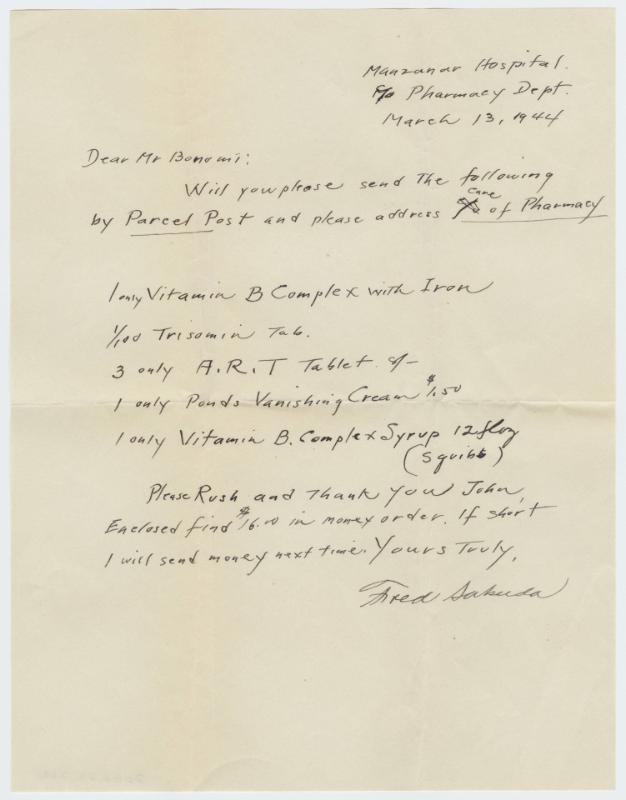 Manzanar Hospital.
c/o Pharmacy Dept.
March 13, 1944
Dear Mr Bonomi:
Will you please send the following
by Parcel Post and please address care of Pharmacy
1 only Vitamin B Complex with Iron
1/100 Trisomin Tab.
3 only A.R.T Tablet
1 only Ponds Vanishing Cream $1.50
1 only Vitamin B. Complex Syrup 12 floz
(Squibb)
Please Rush and Thank You John,
Enclosed find $16.00 in money order. If short
I will send money next time. Yours Truly,
Fred Sakuda